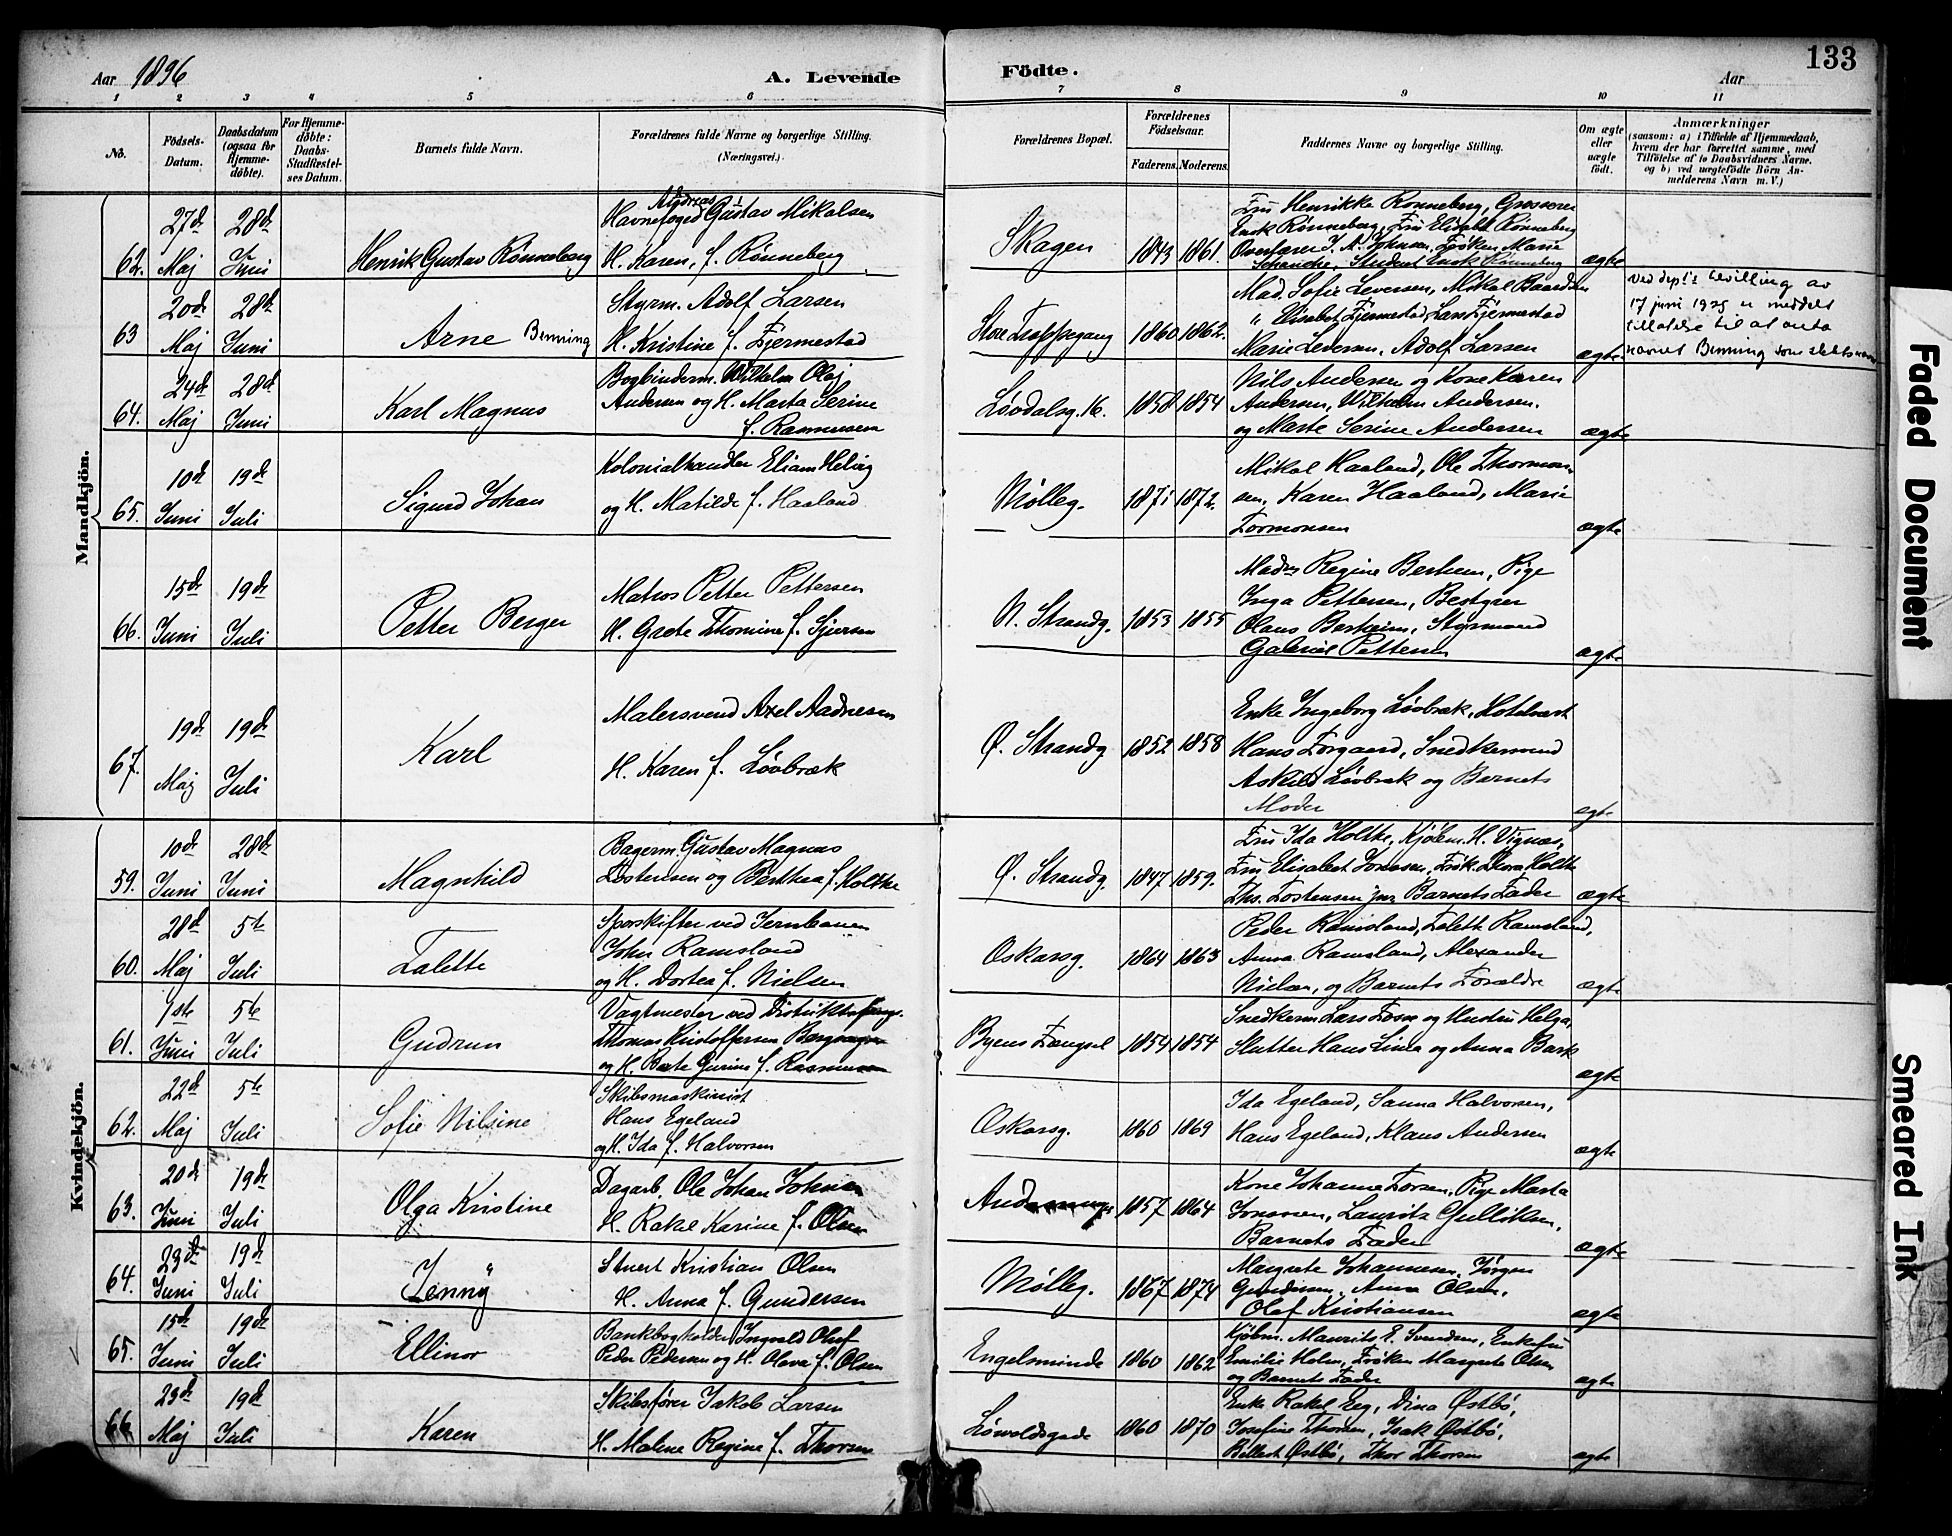 133
Aar 1896
A. Levende
Födte.
Aar
1 2 3 4 5 6 7 8 9 10 11
No.
Födsels-
Datum.
Daabsdatum
(ogsaa for
Hjemme-
döbte).
For Hjemme-
döbte:
Daabs-
Stadfæstel-
ses Datum.
Barnets fulde Navn.
Forældrenes fulde Navne og borgerlige Stilling.
(Næringsvei.)
Forældrenes Bopæl.
Forældrenes
Födselsaar.
Faderens. Moderens.
Faddernes Navne og borgerlige Stilling.
Om ægte
eller
uægte
födt.
Anmærkninger
(saasom: a) i Tilfælde af Hjemmedaab,
hvem der har forrettet samme, med
Tilföielse af to Daabsvidners Navne.
og b) ved uægtefödte Börn An-
melderens Navn m. V.)
Mandkjön.
62. 27de Maj 28de Juni
Henrik Gustav Rönneberg
Andreas
Havnefoged Gustav Mikalsen
H. Karen, f. Rønneberg
Skagen 1843 1861.
Fru Henrikke Ronneberg, Grosserer
Enok Rönneberg, Fru Elisabet Rönneberg
Overlærer J. A. Johnsen, Frøken Marie
Schanche, Student Enok Rönneberg
ægte
63 20de Maj 28de Juni
Arne Benning
Styrm. Adolf Larsen
H. Kristine f. Fjermestad
Store Trappegang 1860 1862.
Mad. Sofie Leversen, Mikal Baardsen
" Elisabet Fjermestad, Lars Fjermestad
Marie Leversen, Adolf Larsen
ægte
Ved dept's bevilling av
17 juni 1925 er meddelt
tillatelse til at anta
navnet Benning som slektsnavn
64. 24de Maj 28de Juni
Karl Magnus
Bogbinderm. Wilhelm Olaj
Andersen og H. Marta Serine
f. Rasmussen
Løvdalsg. 16. 1858 1854
Nils Andersen og Kone Karen
Andersen, Wilhelm Andersen.
og Marte Serine Andersen
ægte
65. 10de Juni 19de Juli
Sigurd Johan
Kolonialhandler Eliam Helvig
og H. Matilde f. Haaland
Mølleg. 1871 1872.
Mikal Haaland, Ole Thormon-
sen, Karen Haaland, Marie
Tormonsen
ægte
66. 15de Juni 19de Juli
Petter Berger
Matros Petter Pettersen
H. Grete Thomine f. Sjursen
N. Strandg. 1853 1855
Madm Regine Berheim, Pige
Inga Pettersen, Bestyrer
Olaus Berheim, Styrmand
Gabriel Pettersen
ægte
67. 19de Maj 19de Juli
Karl
Malersvend Axel Aadnesen
H. Karen f. Løvbræk
Ø. Strandg 1852 1858
Enke Ingeborg Løvbræk, Hotelvært
Hans Torgaard, Snedkersvend
Askild Løvbræk og Barnets
Moder
ægte
Kvindekjön.
59. 10de Juni 28de Juni
Magnhild
Bagerm. Gustav Magnus
Tostensen og Berthea f. Holtke
Ø. Strandg. 1847 1859.
Fru Ida Holtke, Kjøbm. H. Vignæs,
Fru Elisabet Jonassen, Frøk. Thora Holtke
Ths. Tostensen jnr Barnets Fader
ægte
60. 28de Maj 5te Juli
Talette
Sporskifter ved Jernbanen
John Ramsland
og H. Dortea f. Nielsen
Oskarsg. 1864 1863
Peder Ramsland, Talette Ramsland,
Anna Ramsland, Alexander
Nielsen, og Barnets Forældre
ægte
61. 1ste Juni 5te Juli
Gudrun
Vagtmester ved Distriktsfængs.
Thomas Kristoffersen
og H. Berte Gurine f. Rasmussen
Byens Fængsel 1854 1854
Snedkerm Lars Fosse og Hustru Helga,
Slutter Hans Lima og Anna Bark
ægte
62. 22de Maj 5te Juli
Sofie Nilsine
Skibsmaskinist
Hans Egeland
og H. Ida f. Halvorsen
Oskarsg. 1860 1869
Ida Egeland, Sanna Halvorsen,
Hans Egeland, Klaus Andersen
ægte
63. 20de Juni 19de Juli
Olga Kristine
Dagarb. Ole Johan Johnsen
H. Rakel Karine f. Olsen
1857 1864
Kone Johanne Torsen, Pige Marta
Jonassen, Lauritz Gulliksen,
Barnets Fader
ægte
64. 23de Juni 19de Juli
Jenny
Stuert Kristian Olsen
H. Anna f. Gundersen
Mølleg. 1867 1874
Margrete Johannesen, Jørgen
Gundersen, Anna Olsen,
Olaf Kristiansen
ægte
65. 15de Juni 19de Juli
Ellinor
Bankbogholder Ingvald Oluf
Peder Pedersen og H. Olava f. Olsen
Engelsminde 1860 1862
Kjøbm. Maurits E. Svendsen, Enkefru
Emilie Holm, Frøken Margrete Olsen
og Barnets Fader
ægte
66 23de Maj 19de Juli
Karen
Skibsfører Jakob Larsen
H. Malene Regine f. Thorsen
Løwoldsgade 1860 1870
Enke Rakel Eeg, Dina Østbø,
Josefine Thorsen, Isak Østbø,
Østbø, Thor Thorsen
ægte
Faded Document
Smeared Ink